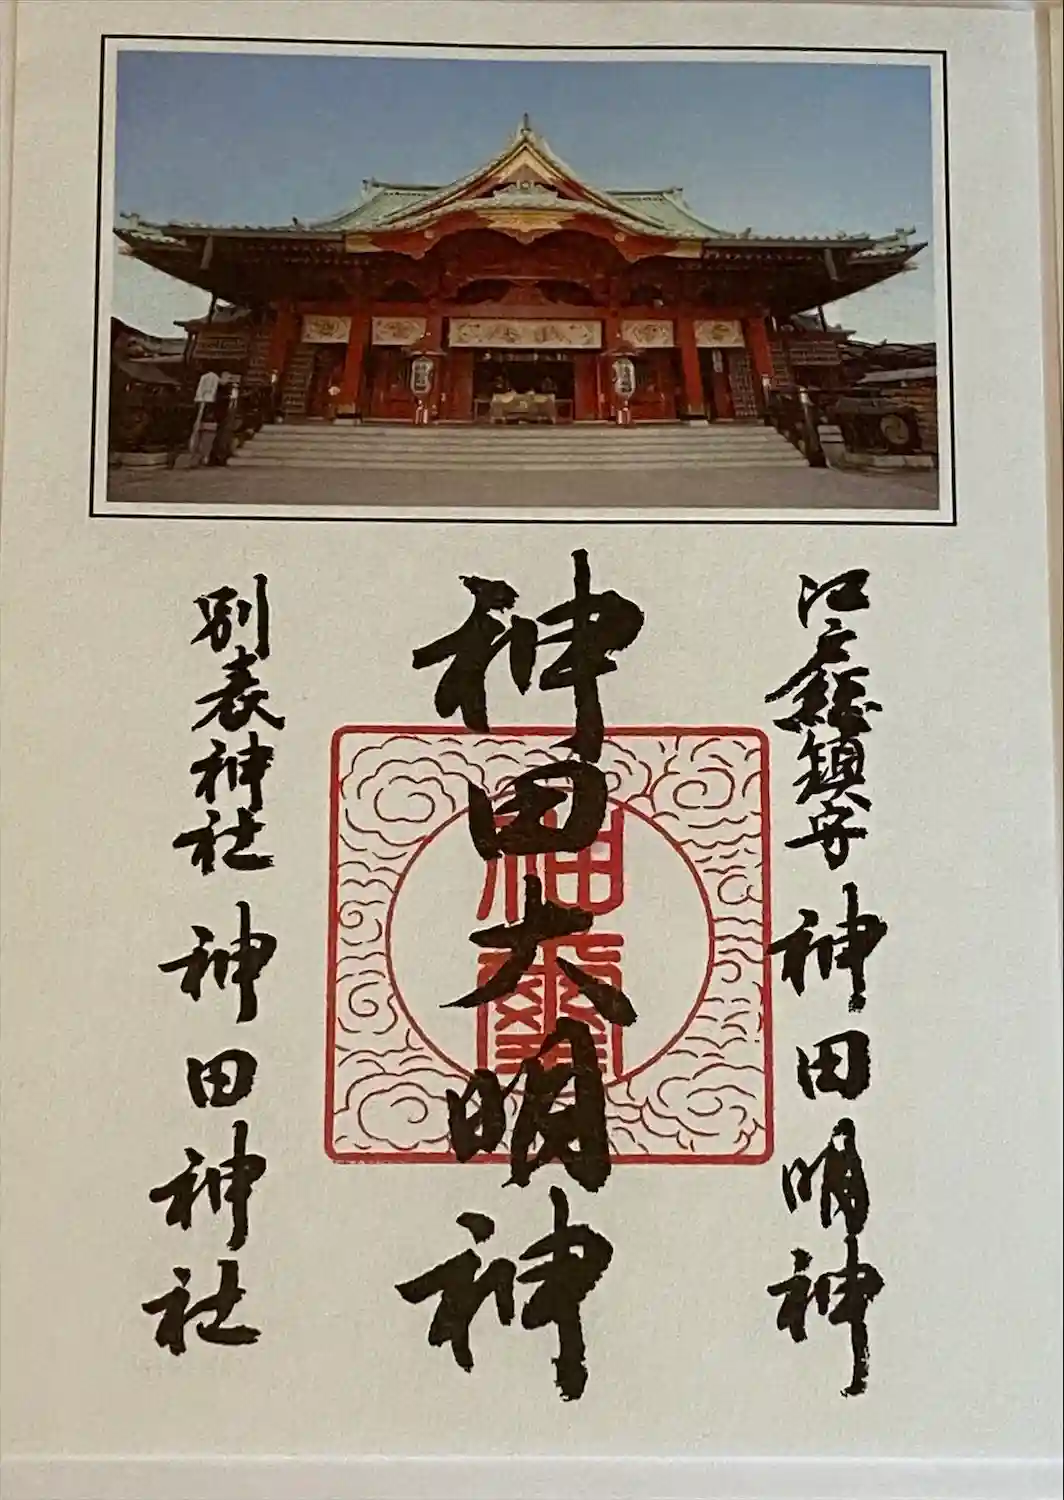 江戸總鎮守 神田明神
神田大明神
別表神社 神田神社
神璽